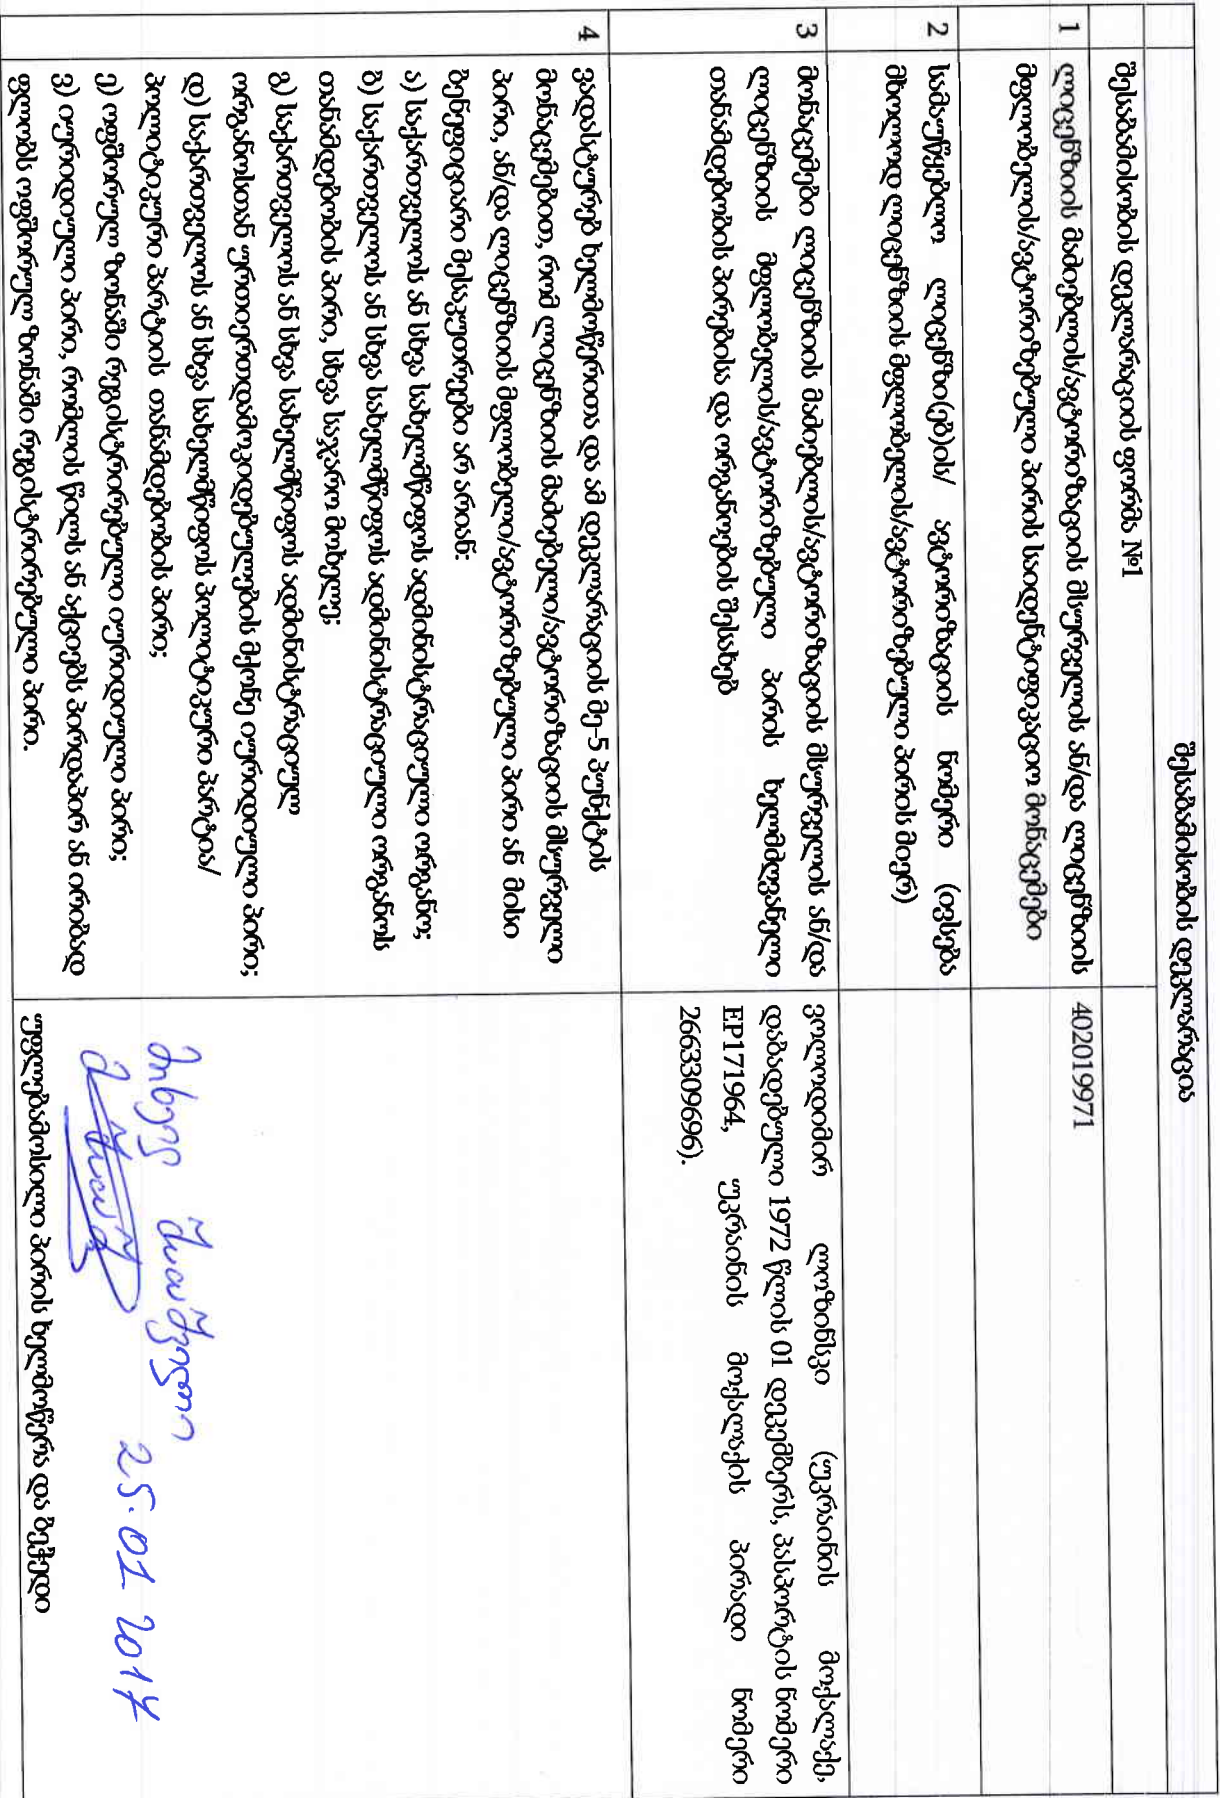 შესაბამისობის დეკლარაცია
შესაბამისობის დეკლარაციის ფორმა №1
1
ლიცენზიის მაძიებლის/ავტორიზაციის მსურველის ან/და ლიცენზიის
მფლობელის/ავტორიზებული პირის საიდენტიფიკაციო მონაცემები
402019971
2
სამაუწყებლო ლიცენზი(ებ)ის/ ავტორიზაციის ნომერი (ივსება
მხოლოდ ლიცენზიის მფლობელის/ავტორიზებული პირის მიერ)
3
მონაცემები ლიცენზიის მაძიებლის/ავტორიზაციის მსურველის ან/და
ლიცენზიის მფლობელის/ავტორიზებული პირის ხელმძღვანელი
თანამდებობის პირებისა და ორგანოების შესახებ
ვოლოდიმირ ლოზინსკი (უკრაინის მოქალაქე,
დაბადებული 1972 წლის 01 დეკემბერს, პასპორტის ნომერი
EP171964, უკრაინის მოქალაქის პირადი ნომერი
2663309696).
4
ვადასტურებ ხელმოწერითა და ამ დეკლარაციის მე-5 პუნქტის
მონაცემებით, რომ ლიცენზიის მაძიებელი/ავტორიზაციის მსურველი
პირი, ან/და ლიცენზიის მფლობელი/ავტორიზებული პირი ან მისი
ბენეფიციარი მესაკუთრეები არ არიან:
ა) საქართველოს ან სხვა სახელმწიფოს ადმინისტრაციული ორგანო;
ბ) საქართველოს ან სხვა სახელმწიფოს ადმინისტრაციული ორგანოს
თანამდებობის პირი, სხვა საჯარო მოხელე;
გ) საქართველოს ან სხვა სახელმწიფოს ადმინისტრაციულ
ორგანოსთან ურთიერთდამოკიდებულების მქონე იურიდიული პირი;
დ) საქართველოს ან სხვა სახელმწიფოს პოლიტიკური პარტია/
პოლიტიკური პარტიის თანამდებობის პირი;
ე) ოფშორულ ზონაში რეგისტრირებული იურიდიული პირი;
ვ) იურიდიული პირი, რომლის წილს ან აქციებს პირდაპირ ან ირიბად
ფლობს ოფშორულ ზონაში რეგისტრირებული პირი.
25.01 2017
უფლებამოსილი პირის ხელმოწერა და ბეჭედი